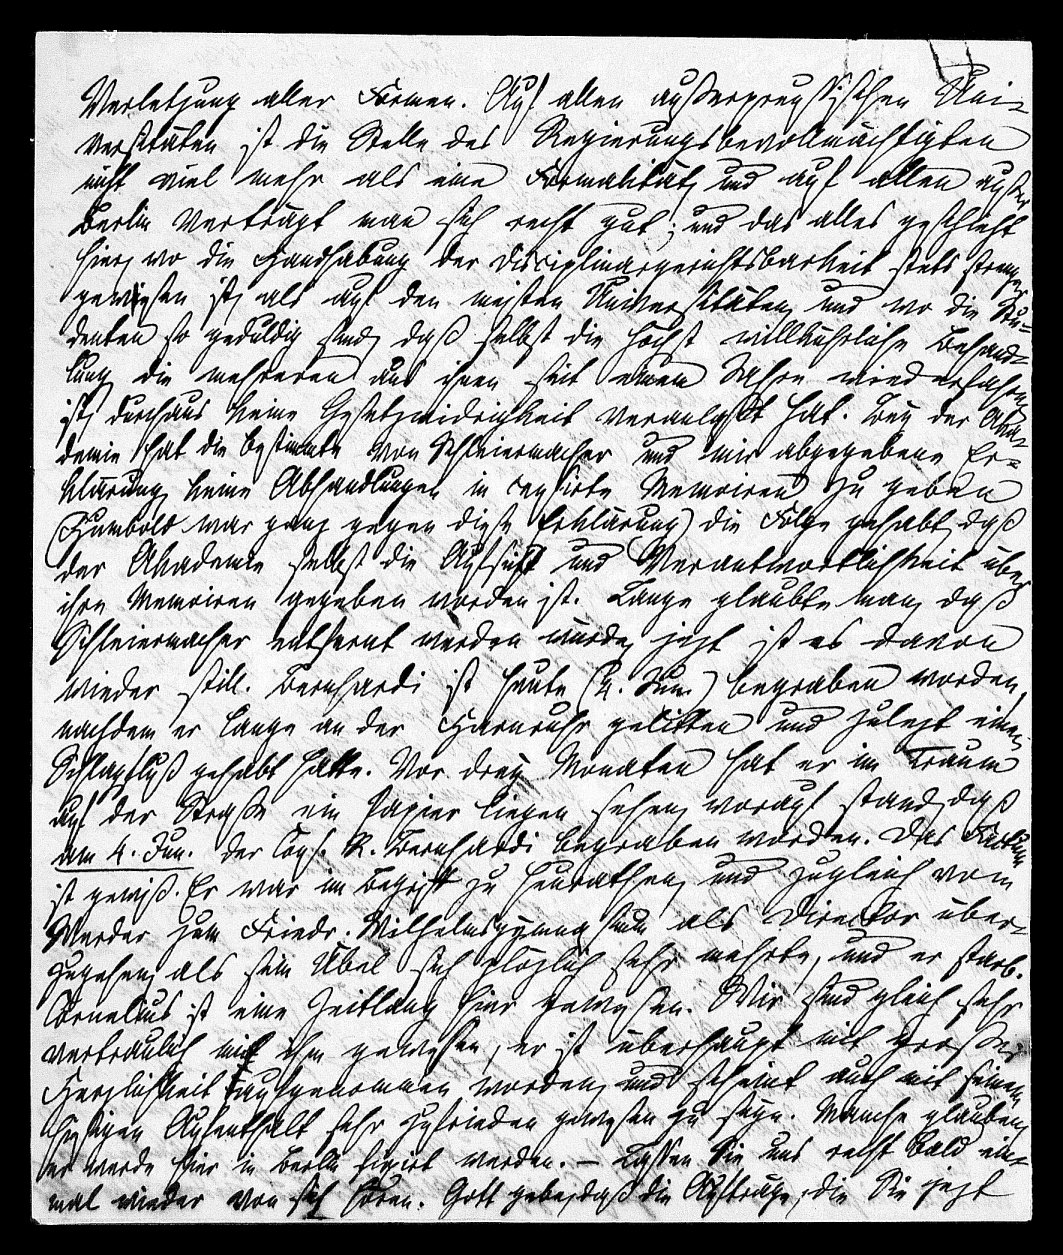 Verletzung aller Formen. Auf allen außerpreußischen Uni-
versitäten ist die Stelle des Regierungsbevollmächtigten
nicht viel mehr als eine Formalität, und auf allen außer
Berlin verträgt man sich recht gut; und das alles geschieht
hier, wo die Handhabung der Disciplinargerichtsbarkeit stets strenger
gewesen ist, als auf den meisten Universitäten, und wo die Stu-
denten so geduldig sind, daß selbst die höchst willkührliche Behand-
lung, die mehreren aus ihnen seit einem Jahre wiederfahren
ist, durchaus keine Gesetzwidrigkeit veranlaßt hat. Bey der Aka-
demie hat die bestimmte von Schleiermacher und mir abgegebene Er-
klärung, keine Abhandlungen in censirte Memoiren zu geben
(Humboldt war ganz gegen diese Erklärung) die Folge gehabt, daß
der Akademie selbst die Aufsicht und Verantwortlichkeit über
ihre Memoiren gegeben worden ist. Lange glaubte man, daß
Schleiermacher entfernt werden würde, jezt ist es davon
wieder still. Bernhardi ist heute (4. Jun.) begraben worden,
nachdem er lange an der Harnruhr gelitten und zulezt einen
Schlagfluß gehabt hatte. Vor drey Monaten hat er im Traum
auf der Straße ein Papier liegen sehen, worauf stand, daß
am 4. Jun. der Cons. R. Bernhardi begraben worden. Das Factum
ist gewiß. Er war im Begriff zu heurathen, und zugleich vom
Werder zum Friedr. Wilhelmsgymnasium als Director über-
zugehen, als sein Übel sich plözlich sehr mehrte, und er starb.
Cornelius ist eine Zeitlang hier gewesen. Wir sind gleich sehr
vertraulich mit ihm gewesen, er ist überhaupt mit großer
Herzlichkeit aufgenommen worden, und scheint auch mit seinem
hiesigen Aufenthalt sehr zufrieden gewesen zu seyn. Manche glauben,
er werde hier in Berlin fixirt werden. – Lassen Sie uns recht bald ein-
mal wieder von sich hören. Gott gebe, daß die Aufträge, die Sie jezt